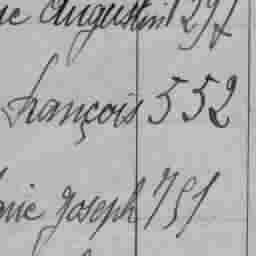 Augustin 297
françois 552
Joseph 751